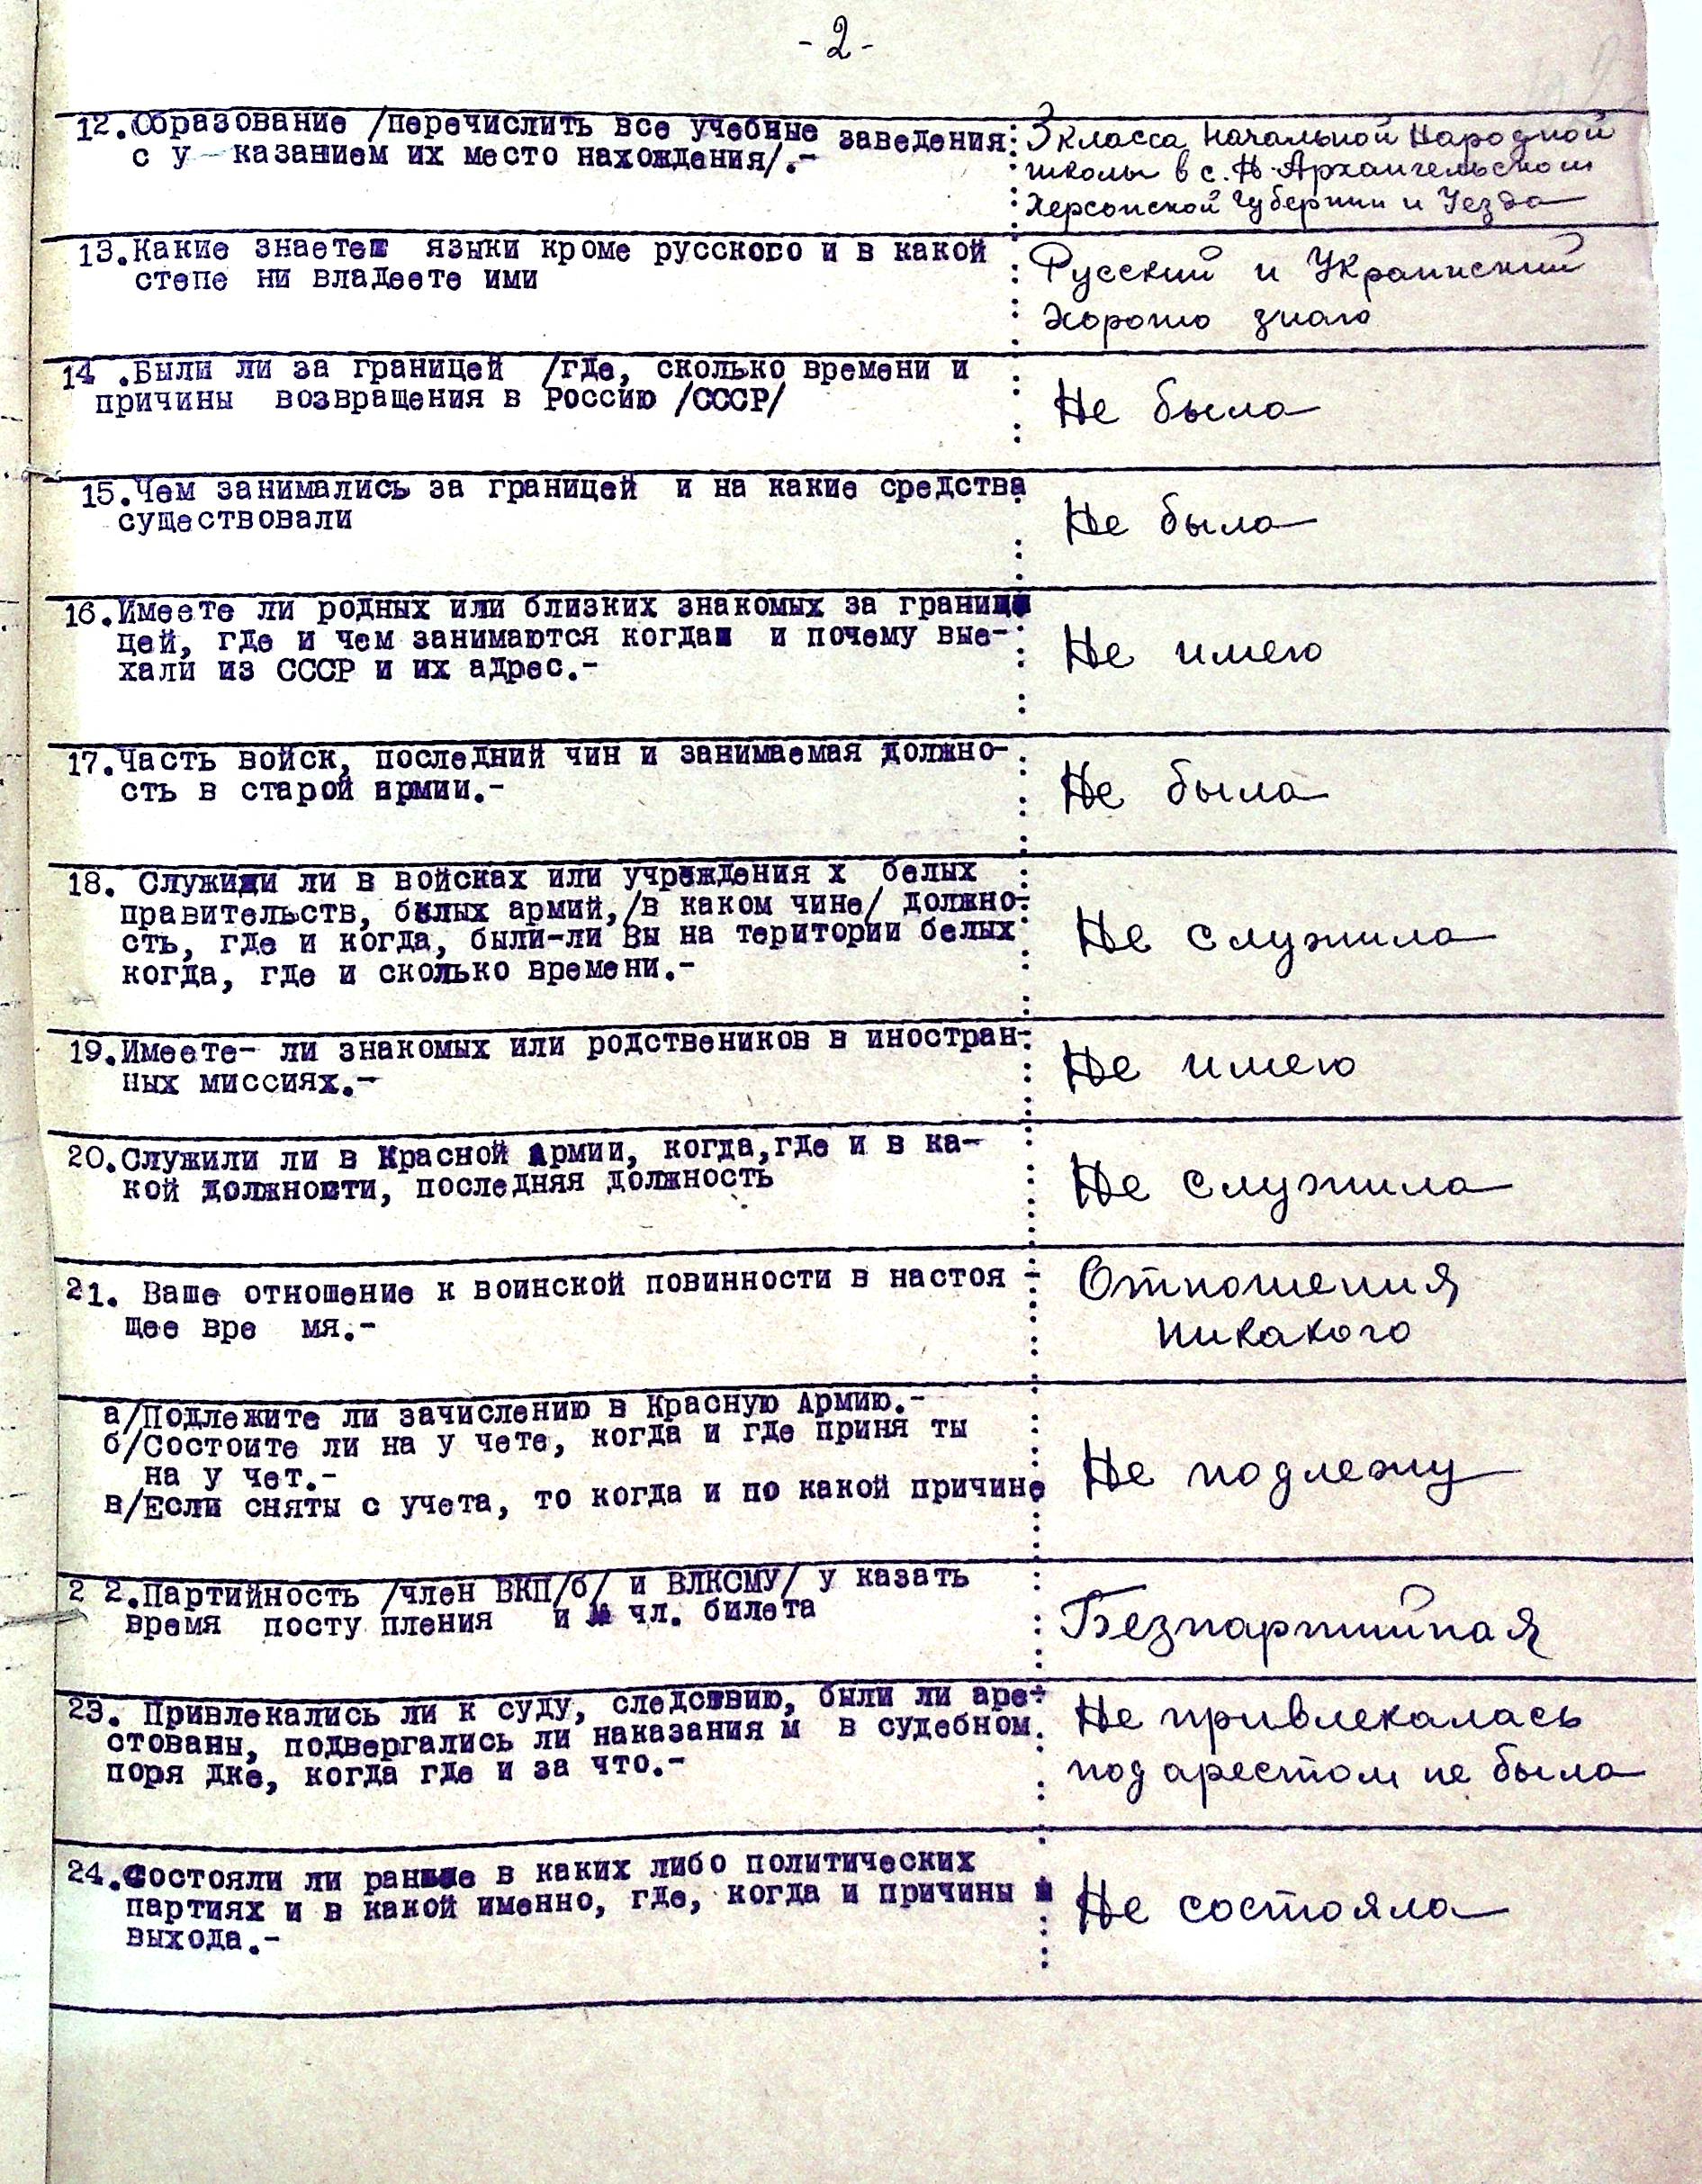 - 2 -
12. Образование /перечислить все учебные заведения:
с у казанием их место нахождения/.-
3 класса Начальной Народной
школы в с. Н-Архангельском
Херсонской Губернии и Уезда
13. Какие знаете языки кроме русского и в какой
степе ни владеете ими
Русский и Украинский
хорошо знаю
14 .Были ли за границей /где, сколько времени и
причины возвращения в Россию /СССР/
Не была
15. Чем занимались за границей и на какие средства
существовали
Не была
16. Имеете ли родных или близких знакомых за грани
цей, где и чем занимаются когда и почему вые-
хали из СССР и их адрес.-
Не имею
17. Часть войск, последний чин и занимаемая должно-
сть в старой армии.-
Не была
18. Служили ли в войсках или учреждения х белых
правительств, белых армий,/в каком чине/ должно-
сть, где и когда, были-ли Вы на територии белых
когда, где и сколько времени.-
Не служила
19. Имеете- ли знакомых или родствеников в иностран-
ных миссиях.-
Не имею
20. Служили ли в Красной Армии, когда,где и в ка-
кой должности, последняя должность
Не служила
21. Ваше отношение к воинской повинности в настоя -
щее вре мя.-
Отношения
никакого
а/Подлежите ли зачислению в Красную Армию.-
б/Состоите ли на у чете, когда и где приня ты
на у чет.-
в/Если сняты с учета, то когда и по какой причине
Не подлежу
2 2. Партийность /член ВКП/б/ и ВЛКСМУ/ у казать
время посту пления и № чл. билета
Безпартийная
23. Привлекались ли к суду, следствию, были ли аре-
стованы, подвергались ли наказания м в судебном
поря дке, когда где и за что.-
Не привлекалась
под арестом не была
24. Состояли ли раньше в каких либо политических
партиях и в какой именно, где, когда и причины
выхода.-
Не состояла